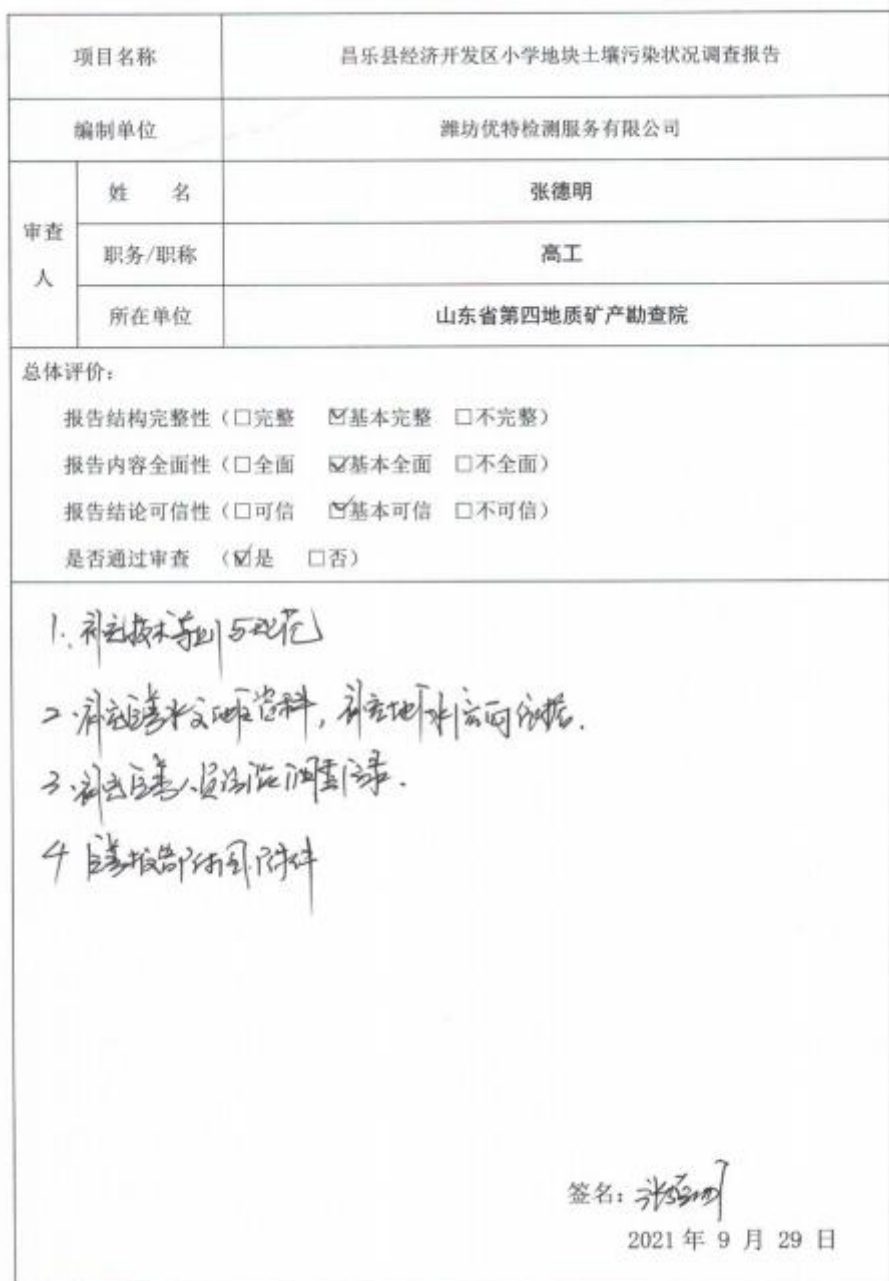 项目名称 昌乐县经济开发区小学地块土壤污染状况调查报告
编制单位 潍坊优特检测服务有限公司
审查人
姓 名 张德明
职务/职称 高工
所在单位 山东省第四地质矿产勘查院
总体评价：
报告结构完整性（□完整 ☑基本完整 □不完整）
报告内容全面性（□全面 ☑基本全面 □不全面）
报告结论可信性（□可信 ☑基本可信 □不可信）
是否通过审查 （☑是 □否）
1. 补充技术导则与规范
2. 补充完善水文地质资料，补充地下水流向依据.
3. 补充完善人员访谈调查记录.
4 完善报告附图附件
签名：张德明
2021 年 9 月 29 日